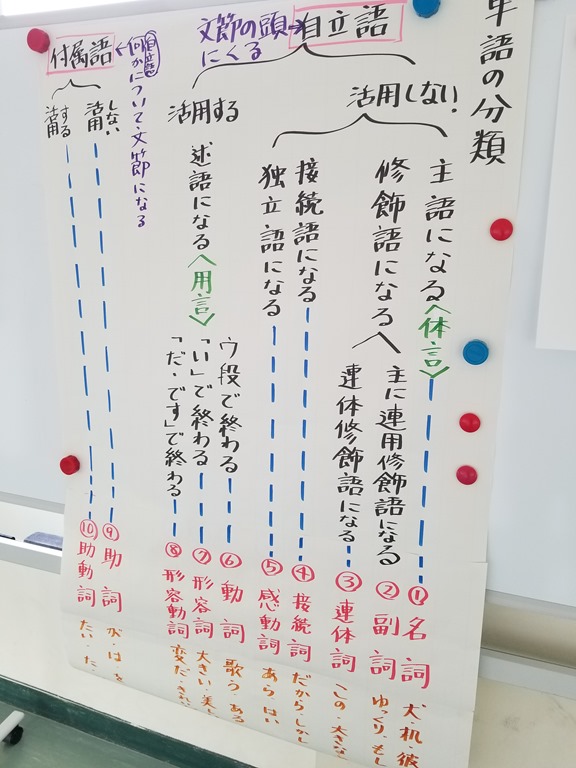 単語の分類
自立語
文節の頭
にくる
活用しない
主語になる〈体言〉
①名詞
犬・机・彼
修飾語になる
主に連用修飾語になる
②副詞
ゆっくり・もし
連体修飾語になる
③連体詞
この・大きな
接続語になる
④接続詞
だから・しかし
独立語になる
⑤感動詞
あら・はい
活用する
述語になる〈用言〉
ウ段で終わる
⑥動詞
歌う・ある
「い」で終わる
⑦形容詞
大きい・美し
「だ・です」で終わる
⑧形容動詞
変だ・きれい
付属語
自立語
何かについて文節になる
活用しない
⑨助詞
が・は・を
活用する
⑩助動詞
たい・た